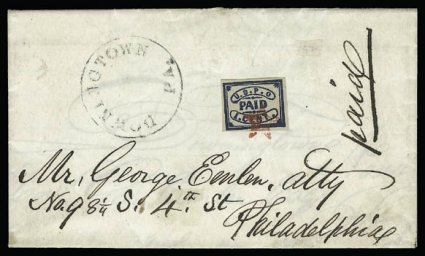 DOWNINGTOWN PA.
U.S.P.O
PAID
1 CENT.
paid
Mr. George Emlen, atty
No. 98½ S. 4th St
Philadelphia